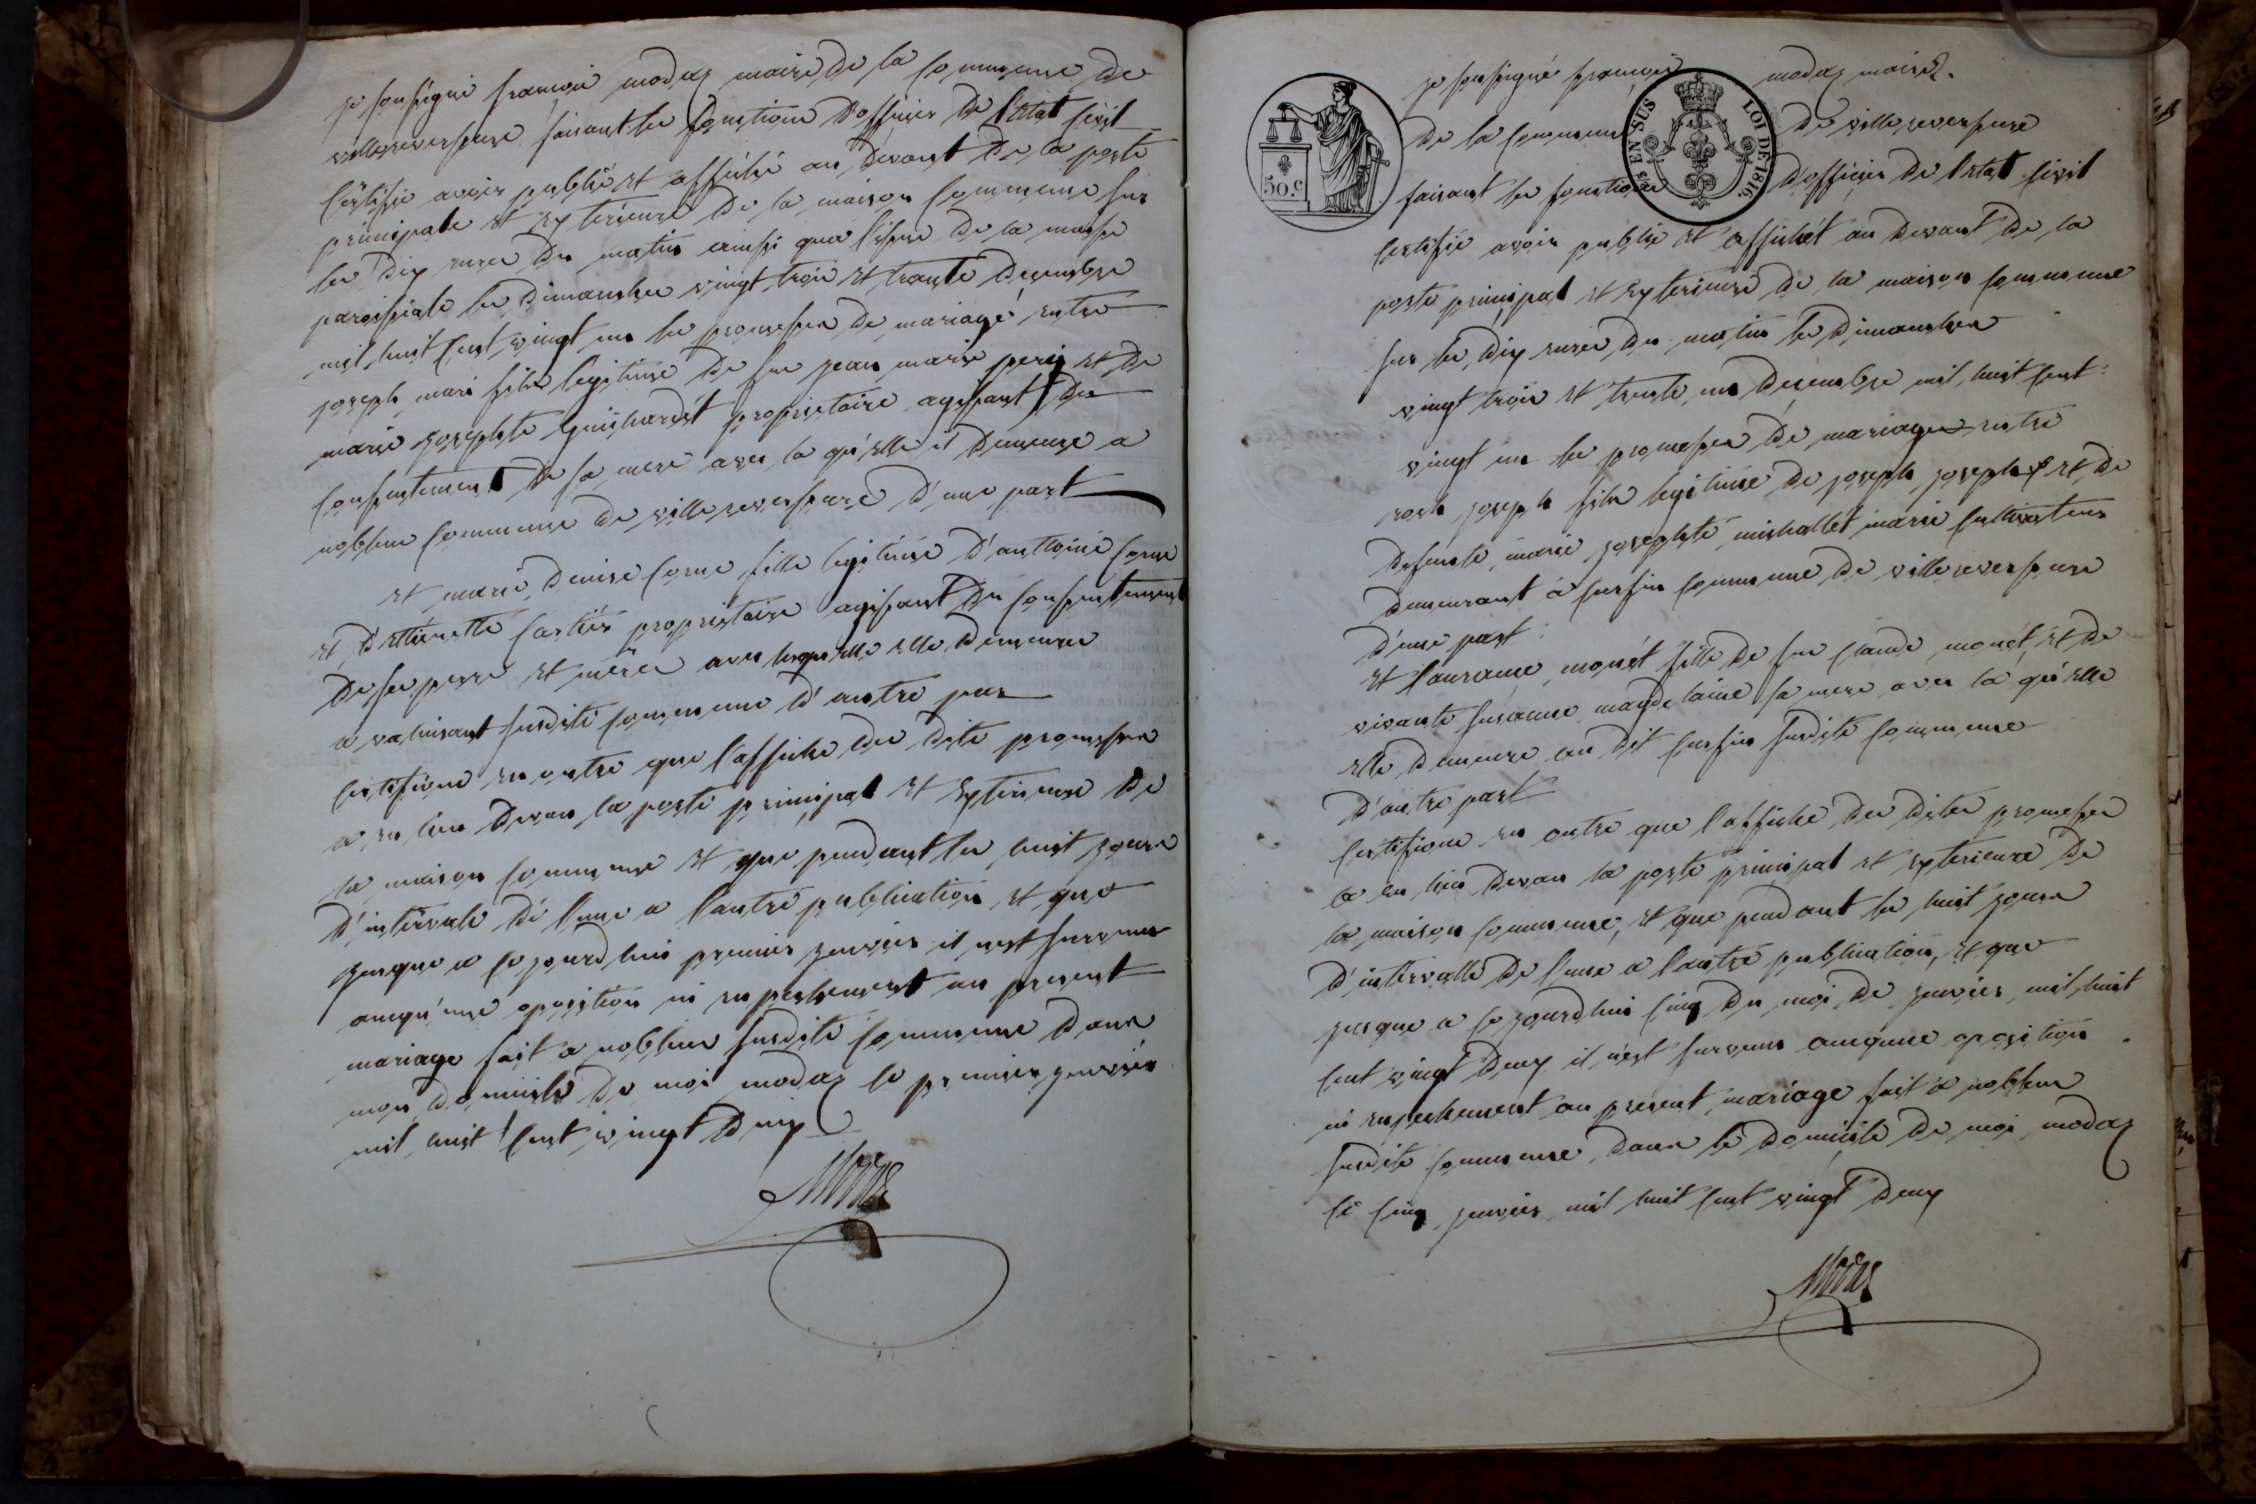 je soussigné francois modaz maire de la commune de
villereversure faisant les fonctions d'officier de l'etat civil
certifie avoir publié et affiché au devant de la porte
principale et exterieure de la maison commune sur
les dix eures du matin ainsi qua l'issue de la messe
paroissiale les dimanches vingt trois et trante decembre
mil huit cent vingt un les promesses de mariage entre
joseph mari fils legitime de feu jean marie et de
marie josephte guichardet propriétaire agissant du
consentement de sa mere avec la qu'elle il demeure a
noblens commune de villereversure d'une part
et marie denise corne fille legitime d'antoine corne
et d'ettiennette cartier propriétaire agissant du consentement
de ses perre et mère avec lesquelle elle demeure
a valuisant susdite commune d'autre par
certifions en outre que l'affiche des dite promesses
a eu lieu devan la porte principal et exterieure de
la maison commune et que pendant les huit jours
d'intervale de l'une a l'autre publication et que
jusque a ce jourd'hui premier janvier il n'est survenu
auqu'une oposition ni enpechement au present
mariage fait a noblens susdite commune dans
mon domicile de moi modaz le premier janvier
mil huit cent vingt deux
Modaz
50.c
EN SUS
LOI DE 1816.
je soussigné francois modaz maire
de la commune de villereversure
faisant les fonctions d'officier de l'etat civil
certifie avoir publié et affichét au devant de la
porte principal et exterieure de la maison commune
sur les dix eures du matin les dimanches
vingt trois et trente un decembre mil huit cent
vingt un les promesses de mariages entre
joseph fils legitime de joseph joseph et de
defunte marie josephte michallet marie cultivateur
demeurant à cursin commune de villereversure
d'une part
et fille de feu claude monét et de
vivante susanne magdelaine sa mere avec la qu'elle
elle demeure au dit cursin susdite commune
d'autre part
certifions en outre que l'affiche des dites promesses
a eu lieu devan la porte principal et exterieure de
la maison commune, et que pendant les huit jours
d'intervalle de l'une a l'autre publication, et que
jusque a ce jourd'hui cinq du moi de janvier mil huit
cent vingt deux il n'est survenu auqune oposition
ni enpechement au present mariage fait a noblens
susdite commune dans le domicile de moi modaz
le cinq janvier mil huit cent vingt deux
Modaz